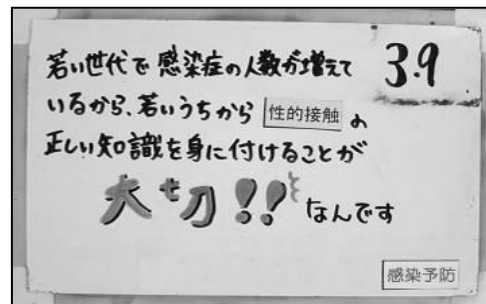 若い世代で感染症の人数が増えて
3.9
いるから、若いうちから性的接触の
正しい知識を身に付けることが
大切!!なんです
感染予防